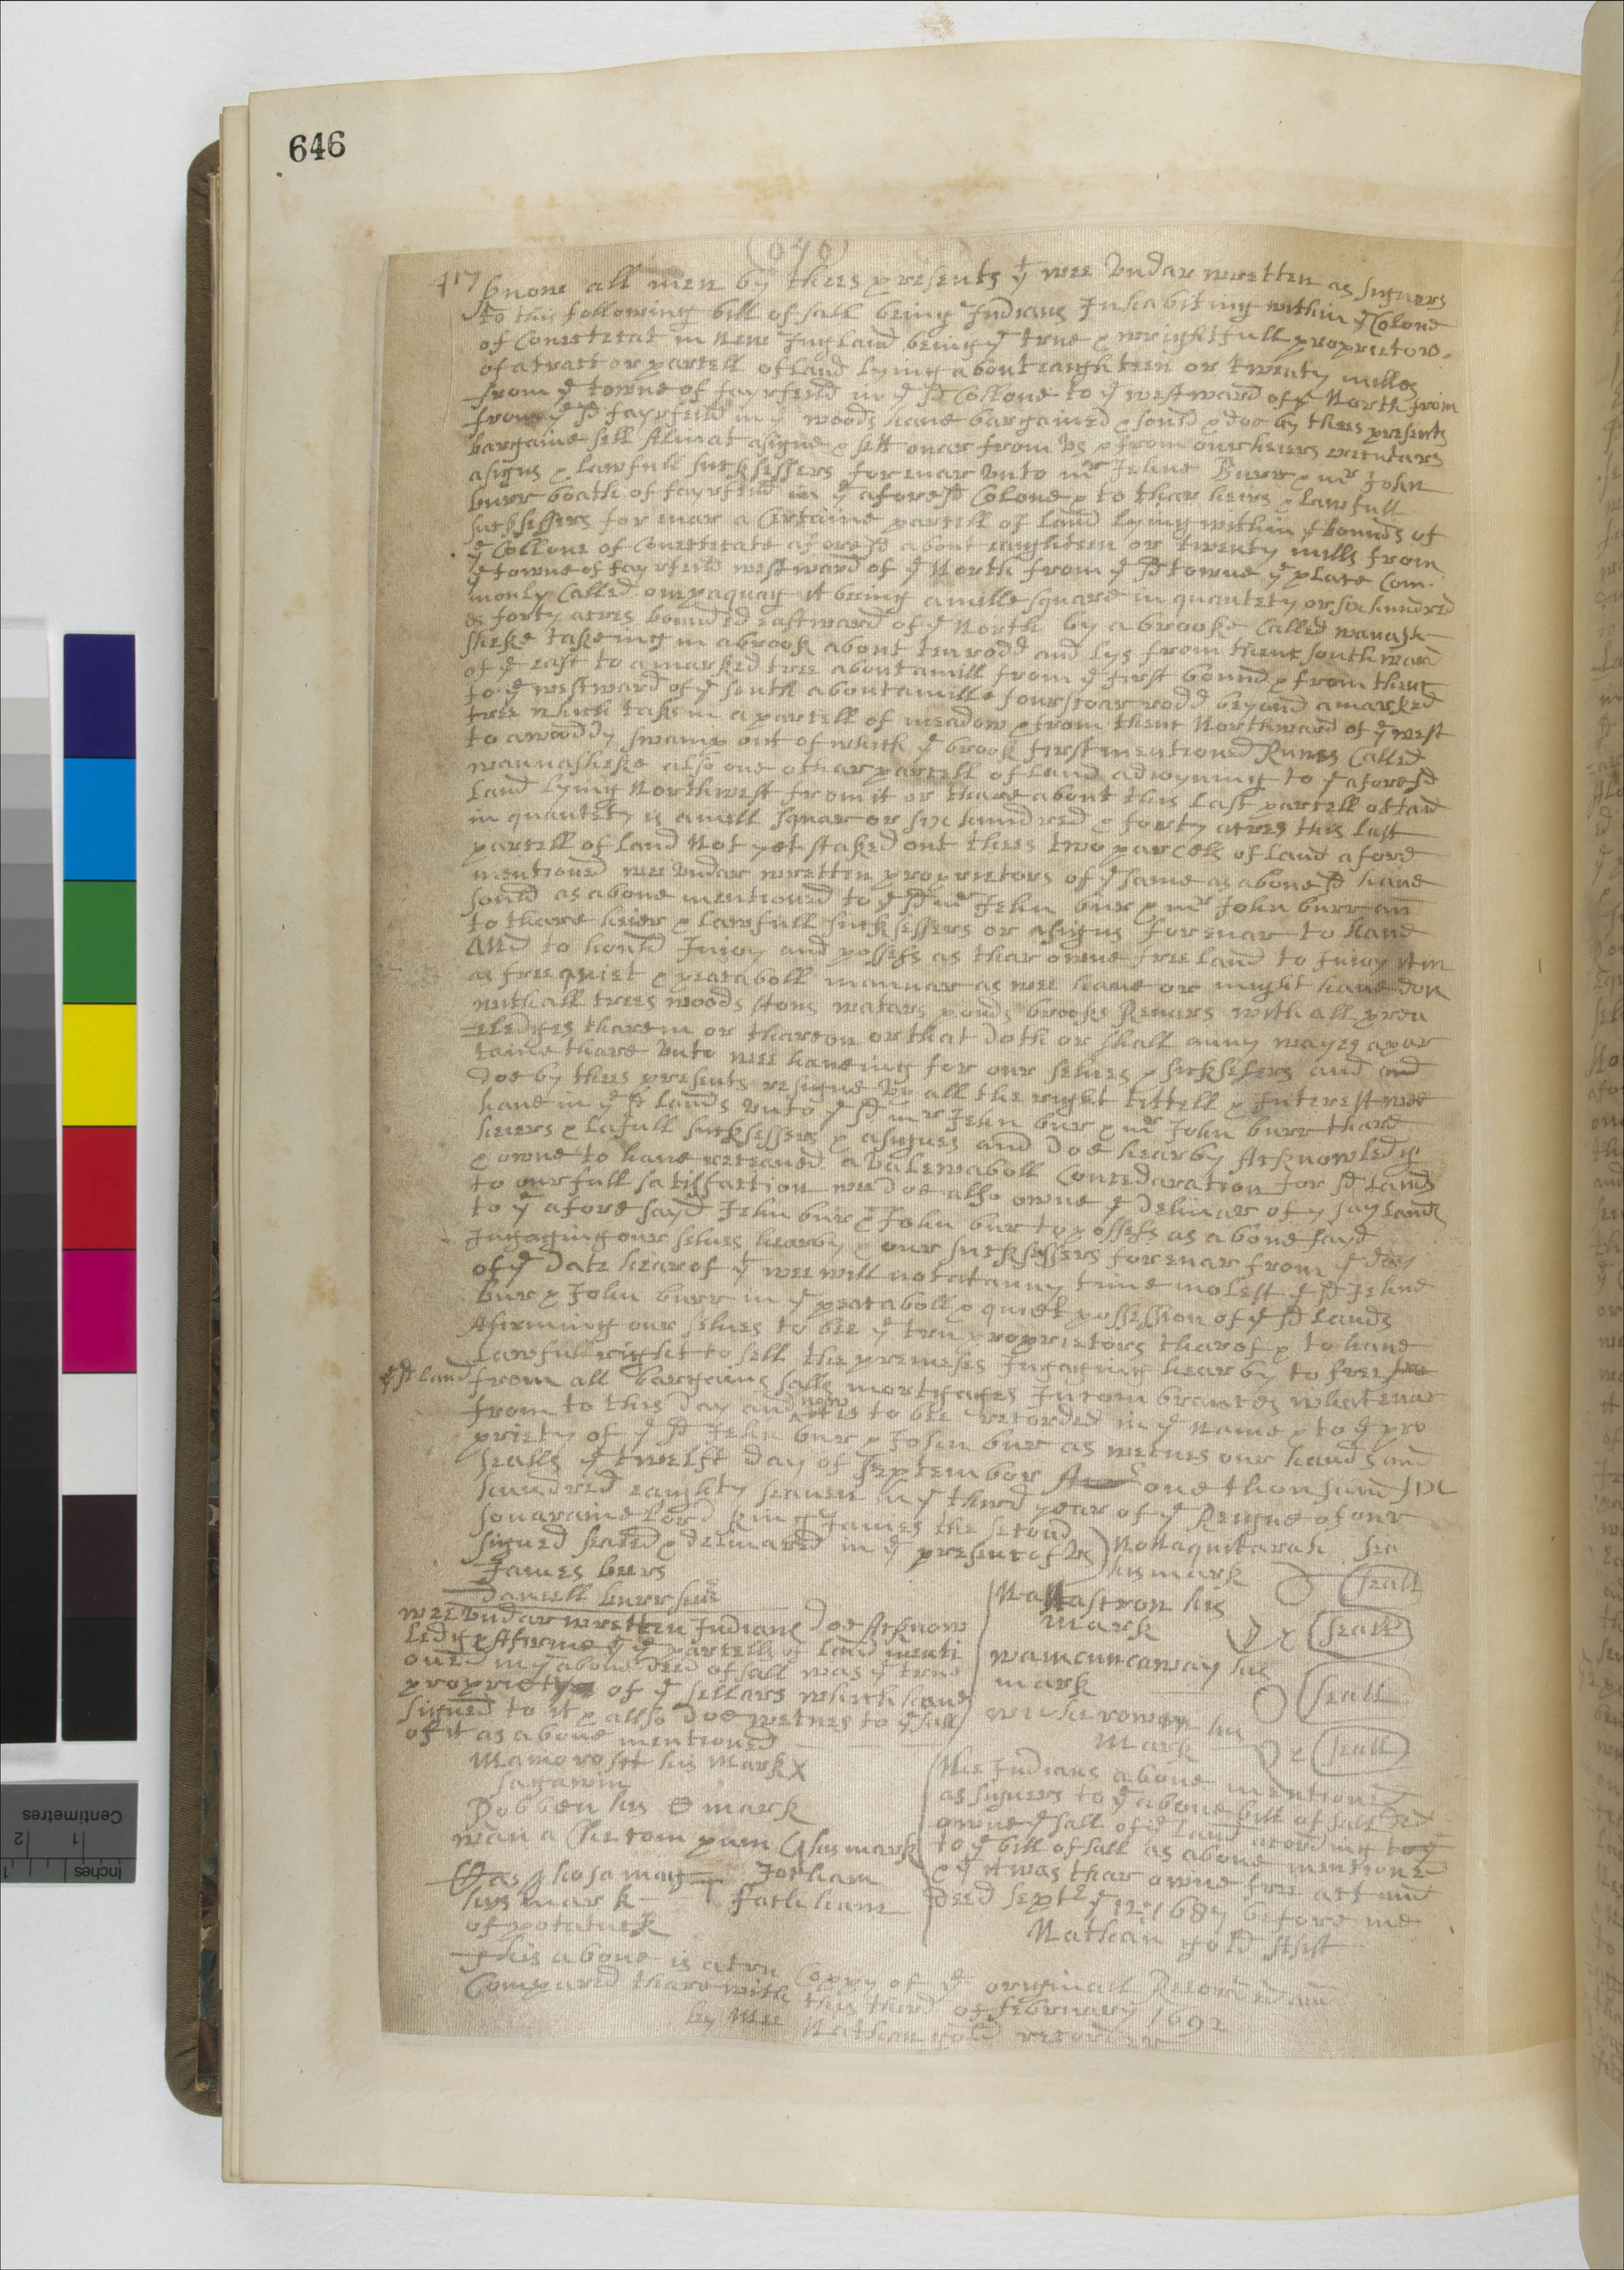 646
(646)
417 Know all men by thees presents yt wee Vndar wretten as signers
to this following bill of sall being Indians Inhabiting within ye Colone
of Conetticat in New Ingland being ye true & wrightfull proprietors
of a tract or parcell of land lying about eaighteen or twenty milles
from ye towne of fayrfeild in ye sd Collone to ye westward of ye North from
from ye sd fayrfeild in ye woods have bargained & sould & doe by thees presents
bargaine sell Alinat asigne & sett ouar from Vs & from our heiers
asigns & lawfull sucksessers foreuar Vnto mr Jehue Burr & mr John
burr boath of fayrfeild in ye afore sd Colone & to thar heirs & lawfull
sucksessers foreuar a Certaine parcell of land lying within ye bounds of
ye Collone of Conetticate afore sd about eaighteen or twenty mills from
ye towne of fayrfeild westward of ye North from ye sd towne ye place Com
monly Called ompaquag it being a mille square in quantety or six hundred
& forty acres bounded eastward of ye North by a brooke Called wanash
sheke takeing in a brook about ten rodd and lys from thenc southward
of ye east to a marked tree about a mill from ye first bound & from thenc
to ye westward of ye south about a mille fourscoar rodd beyond a marked
tree which taks in a parcell of meadow & from thenc Northward of ye west
to a woddy swamp out of which ye brook first mentioned Runs Called
wannasheke also one othar parcell of land adioyning to ye afore sd
Land lying Northwest from it or thare about this Last parcell of land
in quantety is a mill squar or six hundred & forty acres this last
parcell of land Not yet staked out thees two parcels of land afore
mentioned wee Vndar wretten proprietors of ye same as aboue sd haue
sould as aboue mentioned to ye sd mr Jehu bur & mr John burr and
to thare heier & lawfull sucksessers or asigns foreuar to haue
and to hould Injoy and possess as thar owne free land to Injoy it in
as free quiet & peacaboll mannar as wee haue or might haue don
with all trees woods stons watars ponds brooks Reuers with all preu
eledges tharein or thareon or that doth or shall anny wayes apar
taine thare Vnto wee haueing for our selues & sucksesers and and
doe by thees presents resigne Vp all the right tittell & Interest wee
haue in ye sd lands Vnto ye sd mr Jehu bur & mr John burr thare
heiers & lafull sucksessers & asignes and doe hearby Acknowledg
& owne to haue receaued a Valewaboll Concedaration for sd Lands
to our full satisfaction wee doe also owne ye deliuar of ye say Lands
to ye afore sayd Jehu bur & John bur to possess as aboue sayd
Ingaging our selues hearby & our sucksessers foreuar from ye day
of ye date hearof yt wee will not at anny time molest ye sd Jehue
bur & John burr in ye peacaboll & quiet possession of ye sd Lands
Afirming our selues to bee ye tru proprietors tharof & to haue
Lawfull right to sell the premeses Ingaging hearby to free
ye sd land from all bargains salls mortgages Incombrances whateuar
from to this day and now it is to bee recorded in ye Name & to ye pro
priety of ye sd Jehu bur & John bur as wetnes our hands and
sealls ye twelft day of septembor one thousand six
hundred eaighty seauen in ye third year of ye Reigne of our
souaraine Lord King James the second
signed sealed & deliuared in ye presenc of Vs
James beers
Daniell burr senr
Nonaquitarah
his mark Seall
Mattastron his
mark Seall
wamcuncaway his
mark Seall
wickerowen his
mark Seall
wee Vndar wretten Indians doe Acknow
ledg & Afirme yt ye parcells of land menti
oned in ye aboue deed of sall was ye true
propriety of ye sellars which haue
signed to it & allso doe wetnes to ye sall
of it as aboue mentioned
Mamorosett his Mark X
sagawin
Robben his mark
wan a che com pum his mark
hosamag Jorham
his mark fathham
of potatuck
Wee Indians aboue mentioned
as signers to ye aboue bill of sall did
owne ye sall of ye Land acording to ye
to ye bill of sall as aboue mentioned
& yt it was thar owne free act and
deed septe ye 12 1687 before me
Nathan gold Asist
This aboue is a tru Coppy of ye originall Recorded and
Compared thare with this third of february 1692
by mee Nathan gold recorder
Centimetres
Inches
1
2
1